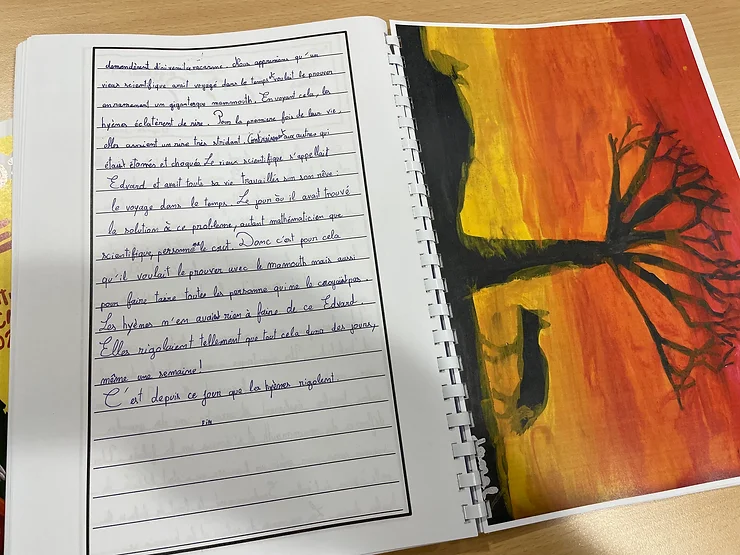 demandèrent d'où venait ce vacarme. Nous apprenions qu'un
vieux scientifique avait voyagé dans le temps et voulait le prouver
en ramenant un gigantesque mammouth. En voyant cela, les
hyènes éclatèrent de rire. Pour la première fois de leur vie,
elles avaient un rire très strident. Contrairement aux autres qui
étaient étonnés et choqués. Le vieux scientifique s'appellait
Edvard et avait toute sa vie travaillés sur son rêve :
le voyage dans le temps. Le jour où il avait trouvé
la solution à ce problème, autant mathématicien que
scientifique, personne ne le crut. Donc c'est pour cela
qu'il voulait le prouver avec le mamouth mais aussi
pour faire taire toutes les personne qui ne le croyaient pas.
Les hyènes n'en avait rien à faire de ce Edvard.
Elles rigolaient tellement que tout cela dura des jours,
même une semaine !
C'est depuis ce jour que les hyènes rigolent.
FIN